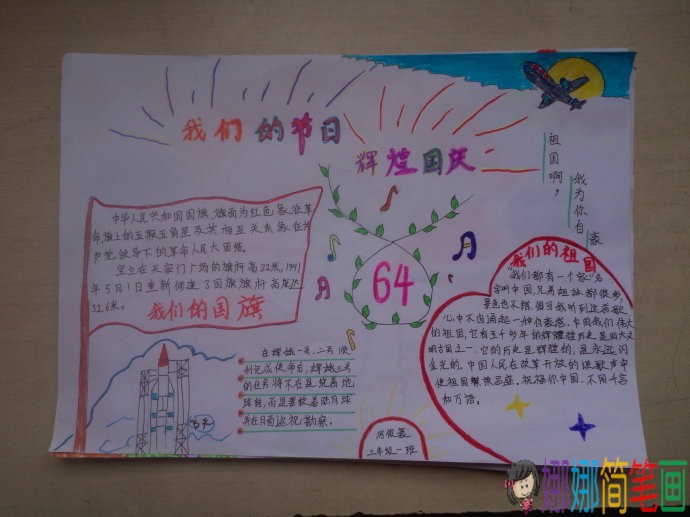 我们的节日
辉煌国庆
祖国啊，
我为你自豪
中华人民共和国国旗，旗面为红色象征革
命，旗上的五颗五角星及其相互关系象征共
产党领导下的革命人民大团结。
竖立在天安门广场的旗杆高22米，1991
年5月1日重新修建了国旗旗杆高度达
32.6米。
我们的国旗
64
我们的祖国
"我们都有一个家"名
字叫中国，兄弟姐妹都很多，
景色也不错，每当我听到这首歌
心中不由涌起一种自豪感，中国我们伟大
的祖国，它有五千多年的辉煌历史，是四大文
明古国之一，它的历史是辉煌的，是永远闪
金光的，中国人民在改革开放的
使祖国繁荣昌盛。祝福你中国，不用千言
和万语。
在嫦娥一号、二号顺
利完成使命后，嫦娥三号
的任务将不在是绕着地
球转，而是要较着陆月球
并在月面巡视勘察。
飞天
三年级一班
娜娜简笔画